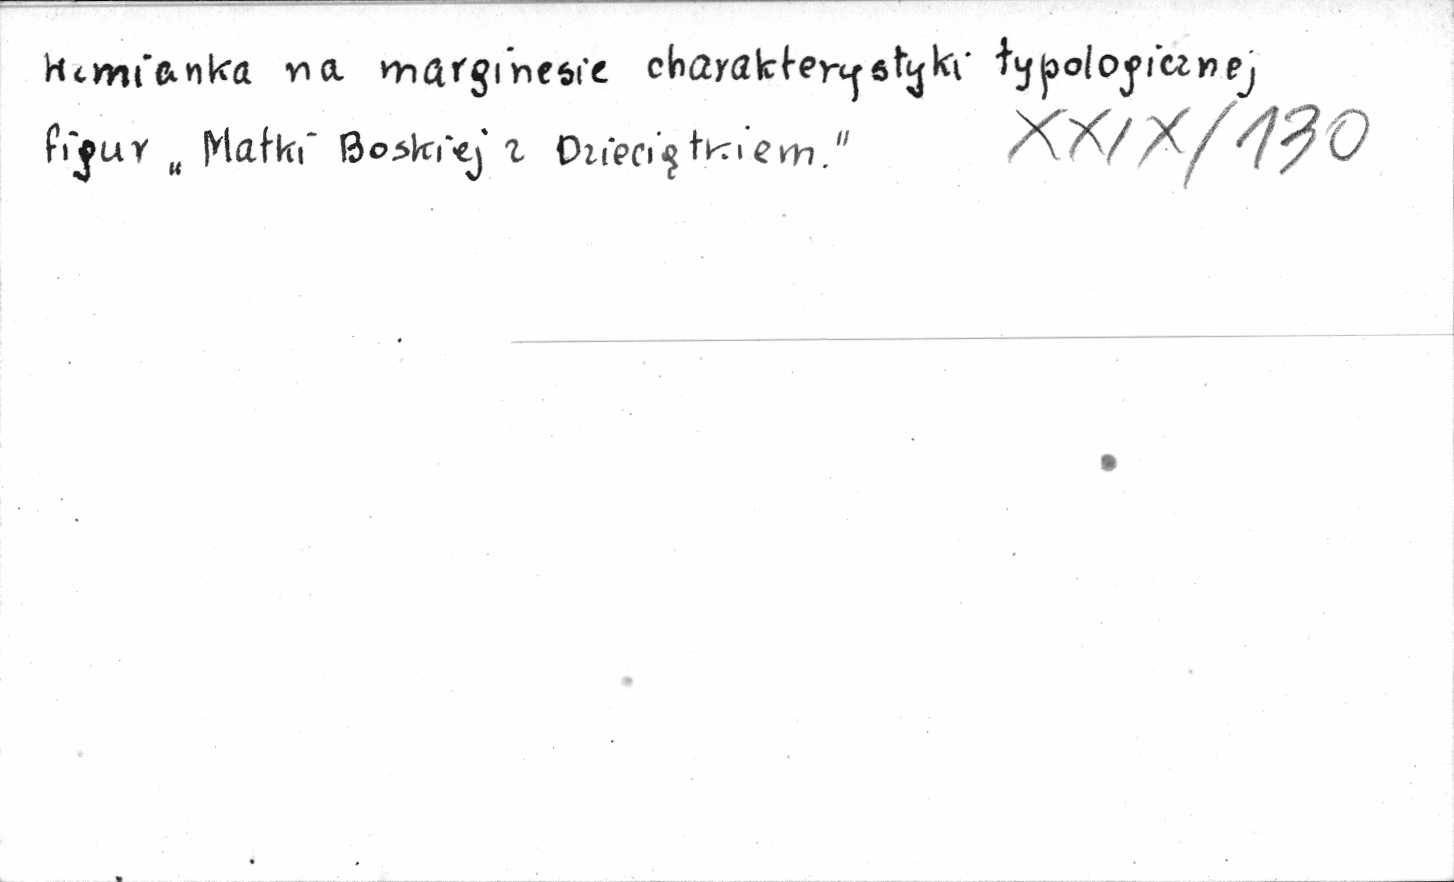 Wzmianka na marginesie charakterystyki typologicznej
figur „Matki Boskiej z Dzieciątkiem."
XXIX/130